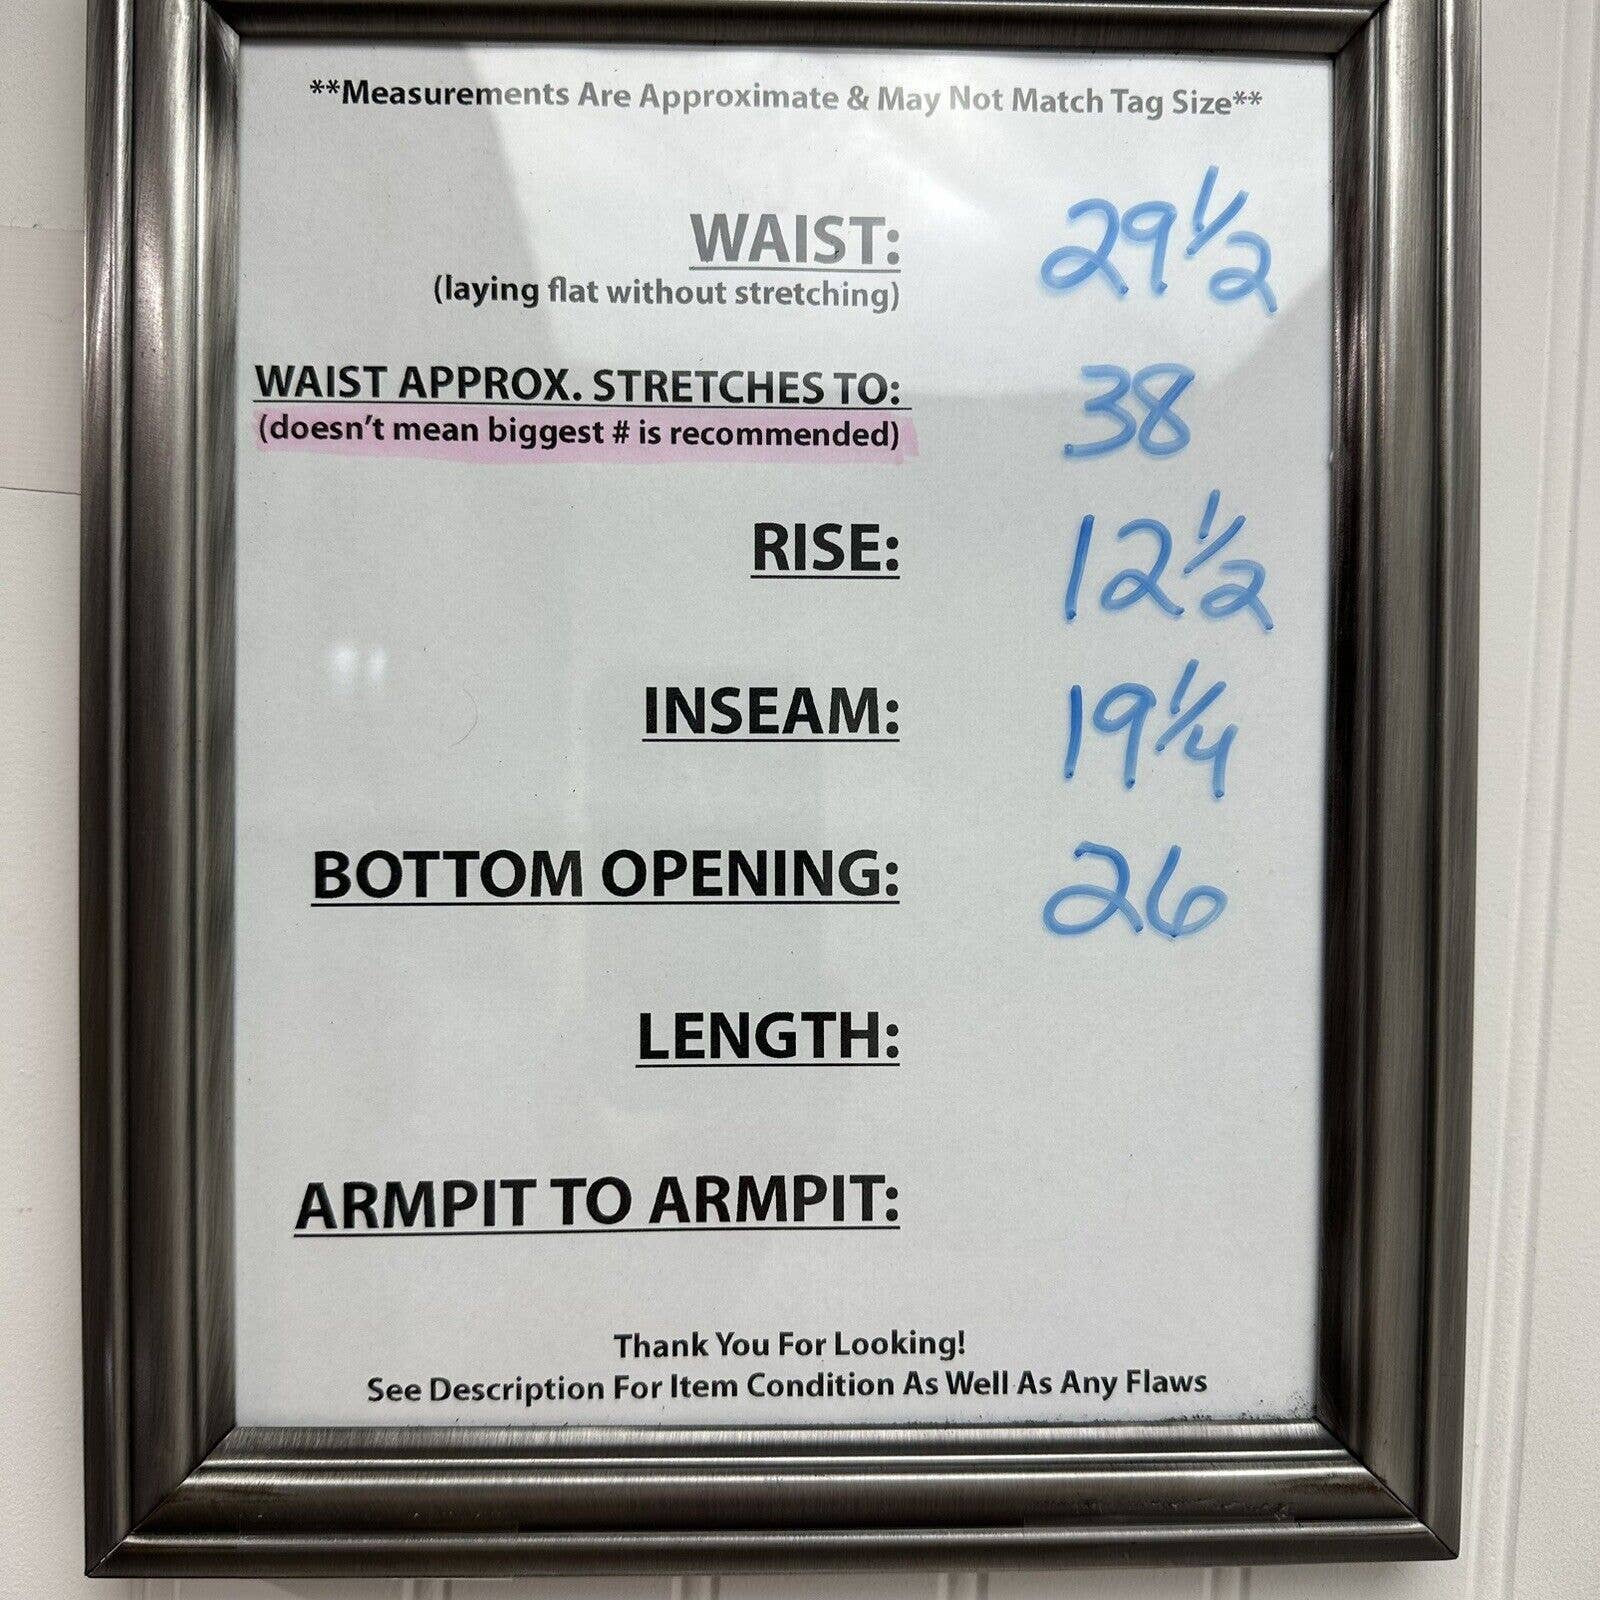 **Measurements Are Approximate & May Not Match Tag Size**
WAIST: 29 1/2
(laying flat without stretching)
WAIST APPROX. STRETCHES TO: 38
(doesn't mean biggest # is recommended)
RISE: 12 1/2
INSEAM: 19 1/4
BOTTOM OPENING: 26
LENGTH:
ARMPIT TO ARMPIT:
Thank You For Looking!
See Description For Item Condition As Well As Any Flaws